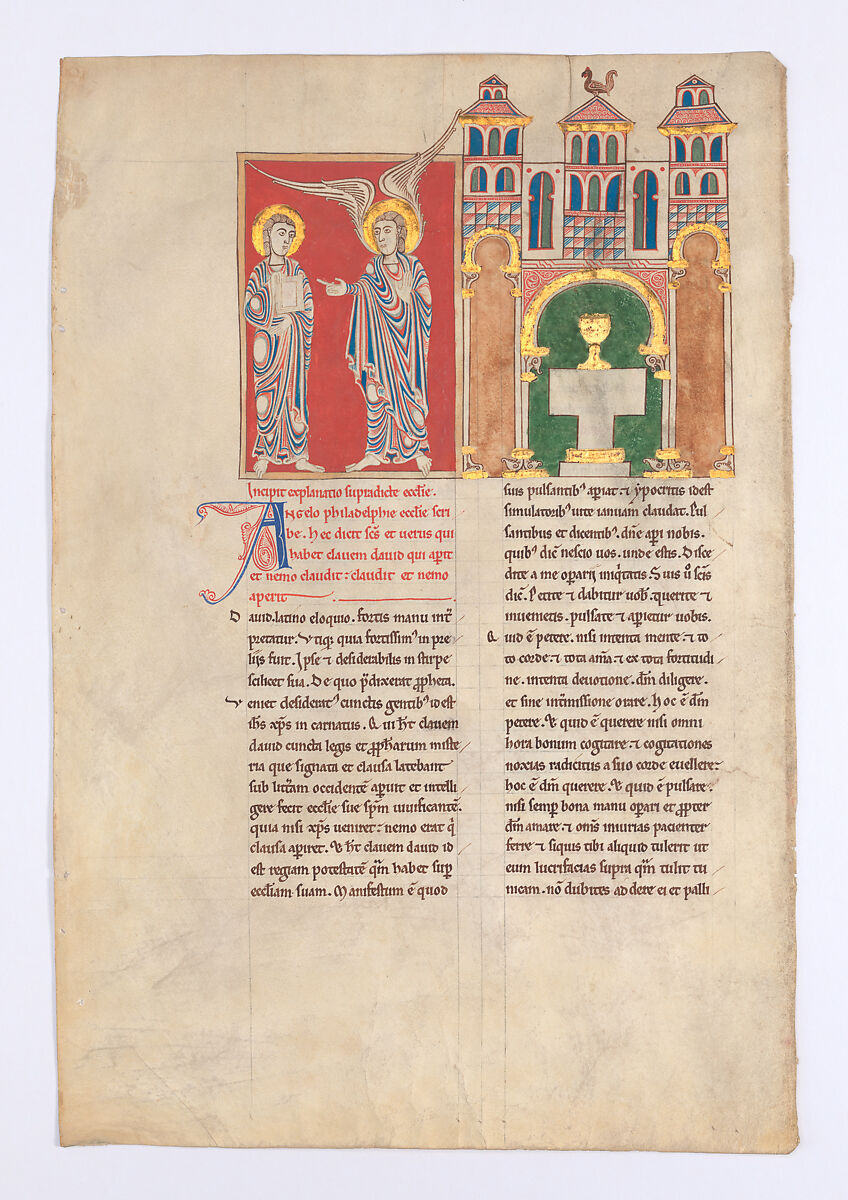 Incipit explanatio supradicte eccl̄ie.
Angelo philadelphie ecclie scri
be. hec dicit scs̄ et uerus qui
habet clauem dauid qui aperit
et nemo claudit: claudit et nemo
aperit
Dauid latino eloquio. fortis manu int̄
pretatur. Vtiqꝫ quia fortissimꝰ in pre
liis fuit. Ipse ⁊ desiderabilis in stirpe
scilicet sua. De quo p̄dixerat ꝓpheta.
Veniet desideratꝰ cunctis gentibꝰ id est
ih̄s xp̄s in carnatus. Qui h̄t clauem
dauid cuncta legis et ꝓph̄arum miste
ria que signata et clausa latebant
sub litt̄am occidentē aperuit et intelli
gere fecit ecclīe sue sp̄m uiuificantē.
quia nisi xp̄s ueniret: nemo erat q̇
clausa aperiret. Et h̄t clauem dauid id
est regiam potestatē qm̄ habet sup̄
eccl̄iam suam. Manifestum ē quod
suis pulsantibꝰ aperiat. ⁊ ypocritis id est
simulatoribꝰ uite ianuam claudat. Pul
santibus et dicentibꝰ. dn̄e aperi nobis.
quibꝰ dic̄ nescio uos. unde estis. Disce
dite a me operarij iniq̇tatis. Suis u̾o scīs
dic̄. Petite ⁊ dabitur uob̄. querite ⁊
inuenietis. pulsate ⁊ aperietur uobis.
Quid ē petere. nisi intenta mente. ⁊ to
to corde. ⁊ tota aīa. ⁊ ex tota fortitudi
ne. intenta deuotione. dm̄ diligere.
et sine int̄missione orare. hoc ē dm̄
petere. Et quid ē querere nisi omni
hora bonum cogitare. ⁊ cogitationes
noxias radicitus a suo corde euellere:
hoc ē dm̄ querere. Et quid ē pulsare.
nisi semꝑ bona manu operari et ꝓpter
dm̄ amare. ⁊ om̄s iniurias pacienter
ferre ⁊ siquis tibi aliquid tulerit ut
eum lucrifacias supra qm̄ tulit tu
nicam. nō dubites ad dere ei et palli